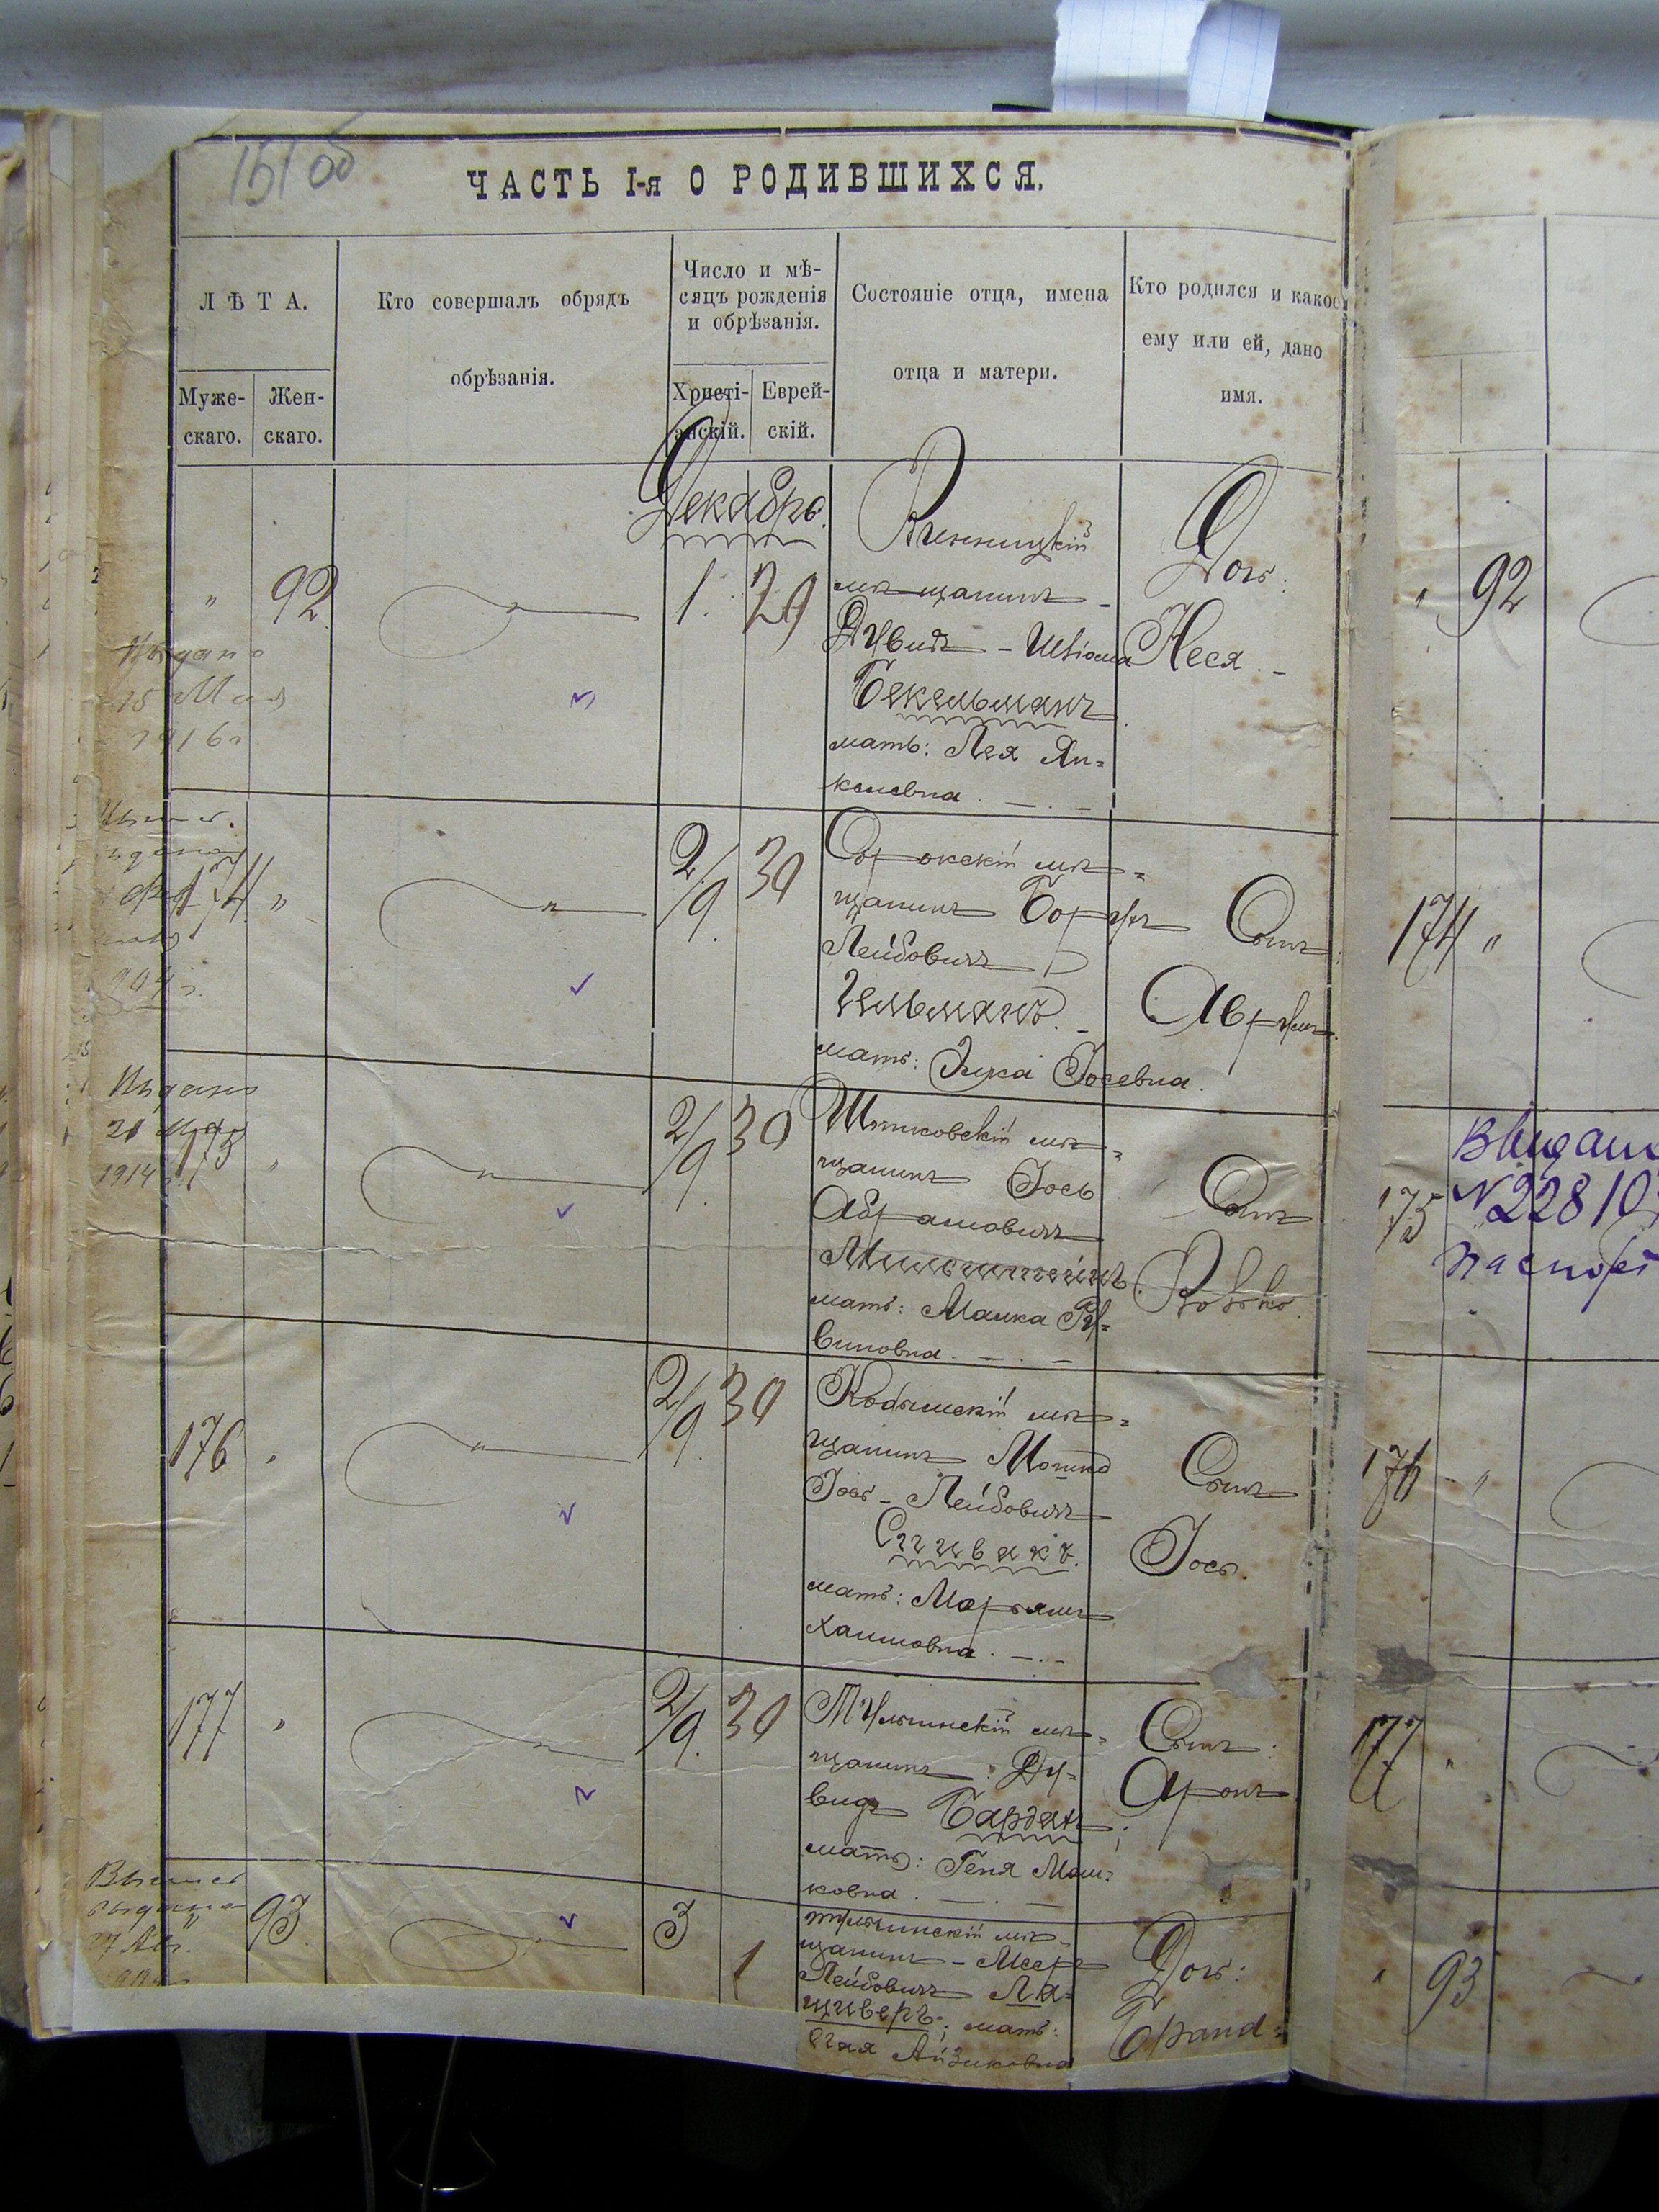 151 об
ЧАСТЬ I-я О РОДИВШИХСЯ.
ЛѢТА.
Муже-
скаго.
Жен-
скаго.
Кто совершалъ обрядъ
обрѣзанія.
Число и мѣ-
сяцъ рожденія
и обрѣзанія.
Христі-
анскій.
Еврей-
скій.
Состояніе отца, имена
отца и матери.
Кто родился и какое
ему или ей, дано
имя.
Декабрь.
" 92 1. 29
Винницкій
мѣщанинъ -
Дувидъ -
Бекельманъ
мать: Лея Ян=
келевна. - . -
Дочь:
Неся. -
15 Мая
1916 г
174 " 2/9. 30
Сорокскій мѣ=
щанинъ Борухъ
Лейбовичъ
Гельманъ. -
мать: Элка Іосевна.
Сынъ:
Аврумъ.
Выдано
21
1914 г
175 " 2/9. 30
Шпиковскій мѣ=
щанинъ Іось
Абрамовичъ
Мильштейнъ.
мать: Малка Ру=
виновна. - . -
Сынъ
176 " 2/9. 30
Кодымскій мѣ=
щанинъ Мошко
Іось - Лейбовичъ
Спивакъ.
мать: Марьямъ
Хаимовна. - . -
Сынъ
Іось.
177 " 2/9. 30
Тульчинскій мѣ=
щанинъ: Ду=
видъ Барданъ;
мать: Геня Мош=
ковна. - . -
Сынъ:
Аронъ
" 93 3 1
Тульчинскій мѣ=
щанинъ - Мееръ
Лейбовичъ Ла=
щиверъ; мать:
Айзиковна
Дочь:
Бранд=
" 92
174 "
175
№22810
паспорт
176 "
177 "
" 93